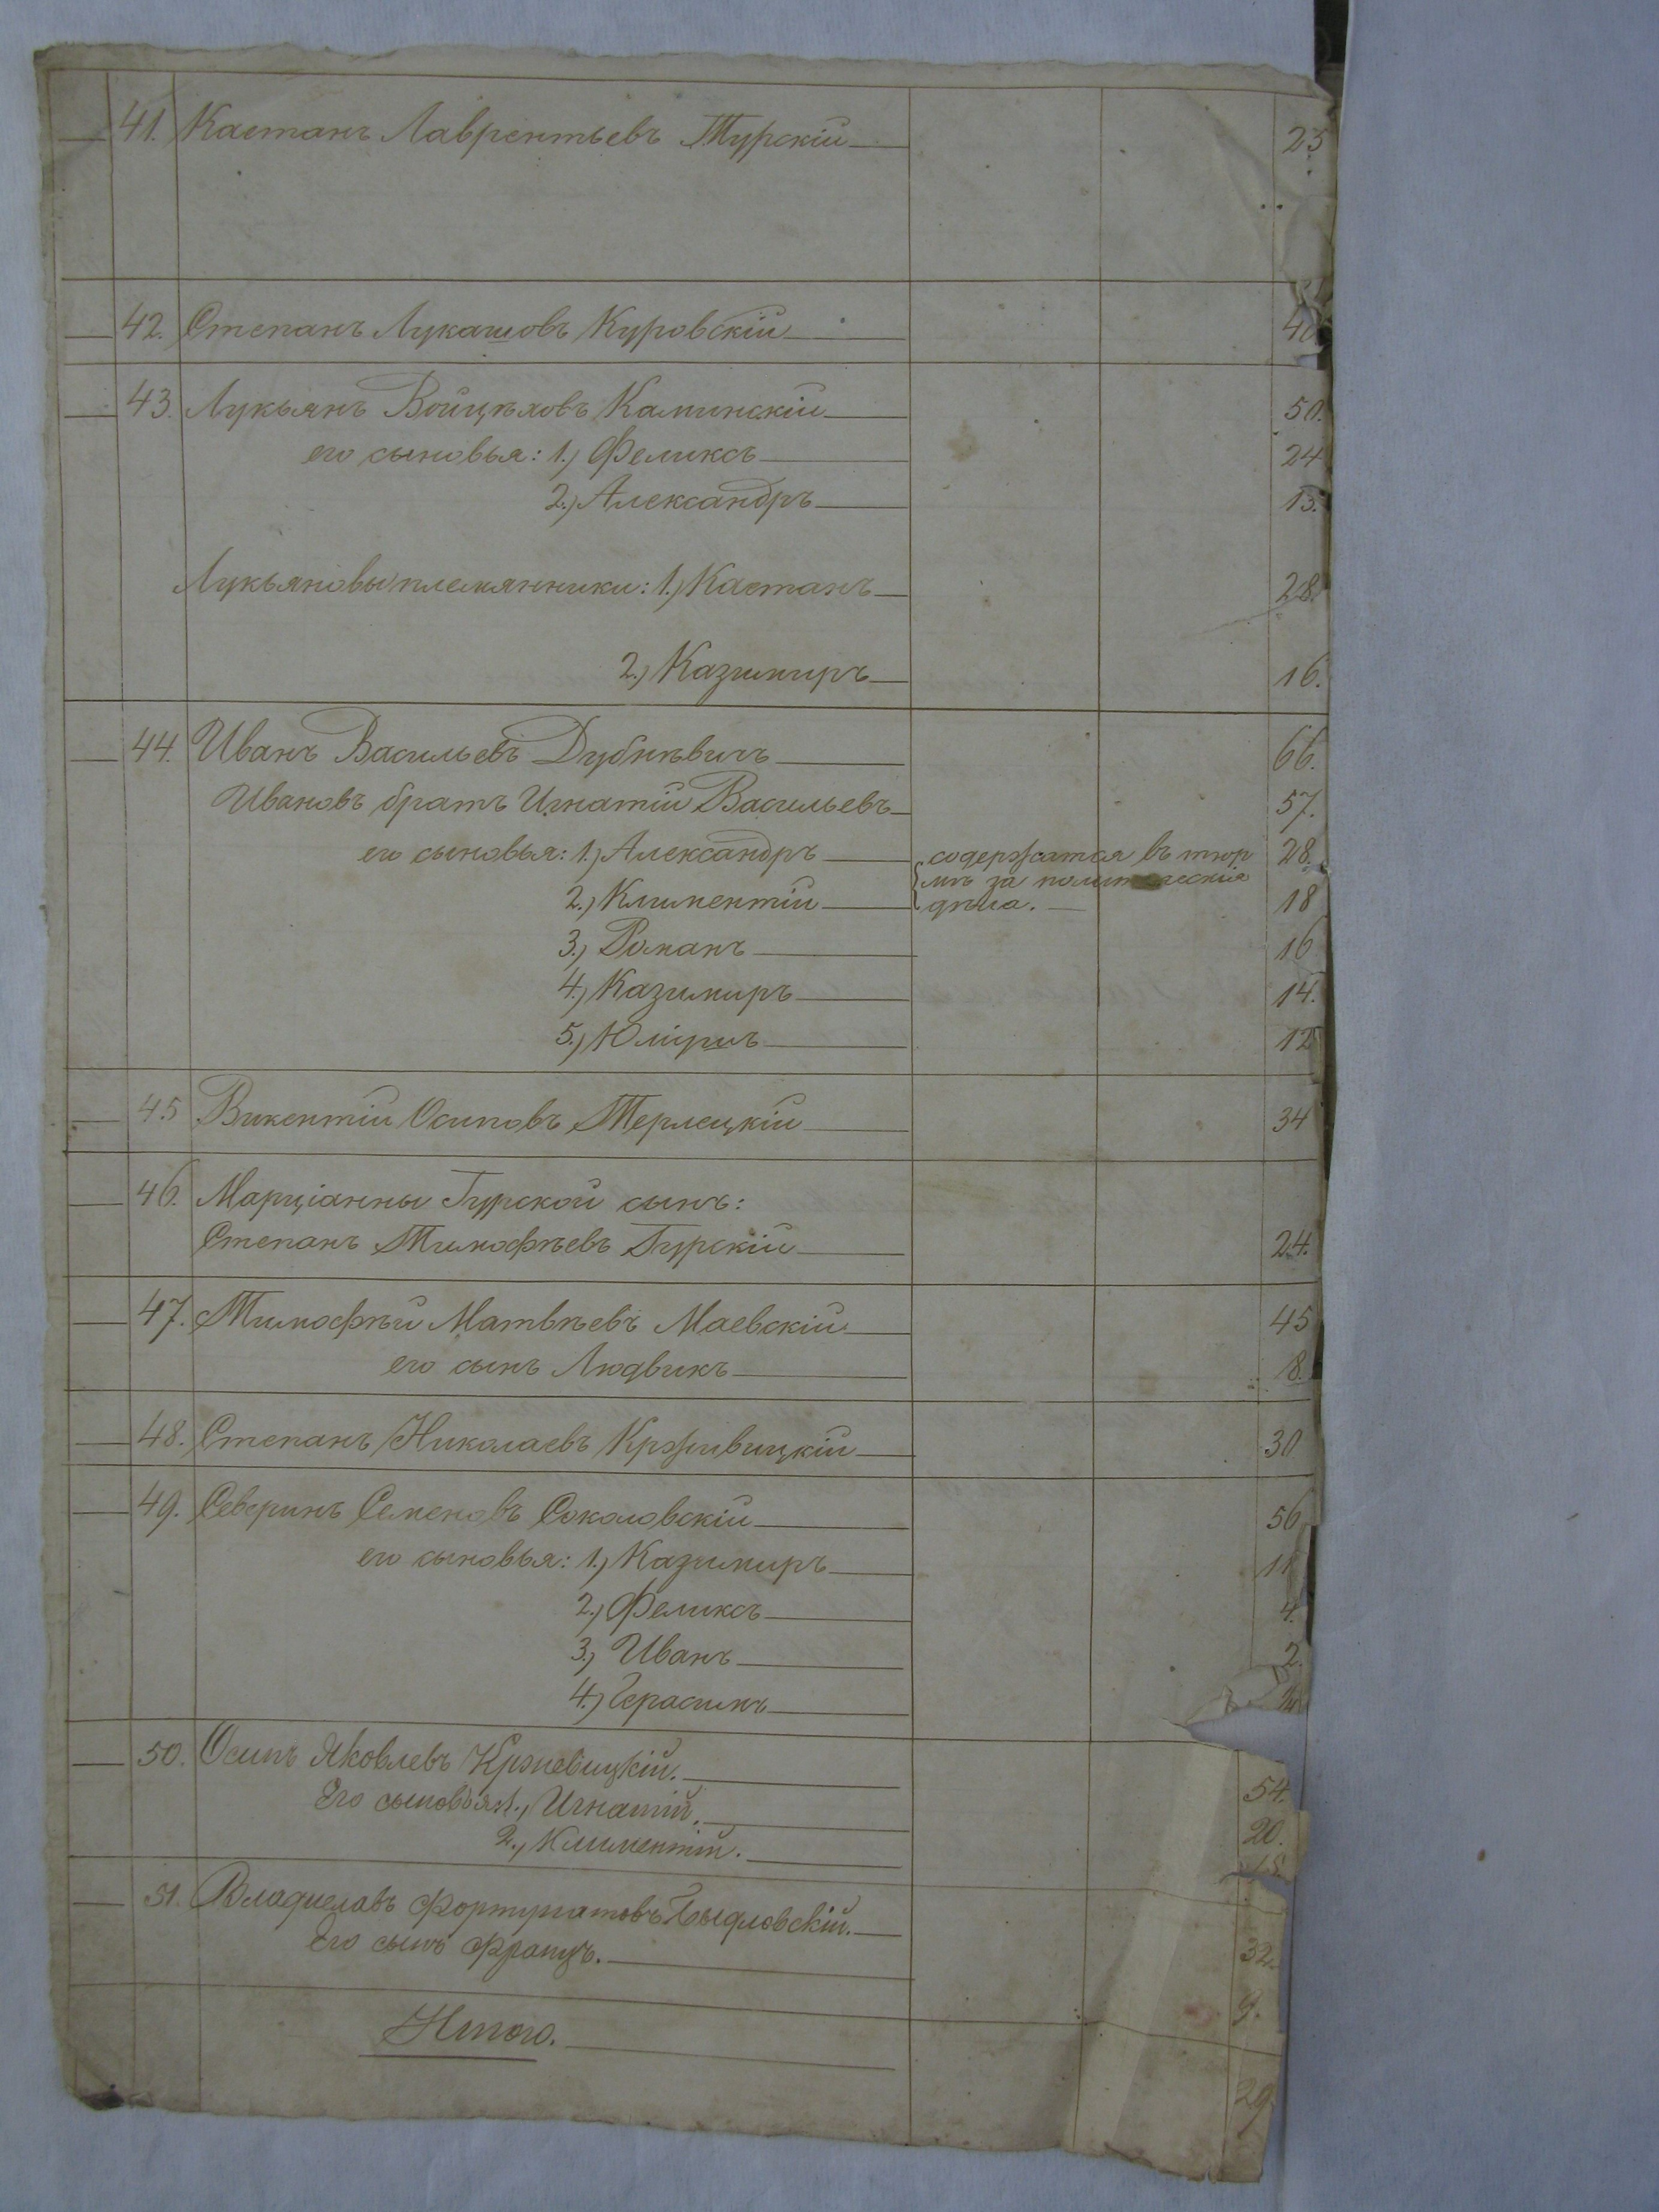 41. Каетанъ Лаврентьевъ Турскій 23
42. Степанъ Лукашовъ Куровскій 40
43. Лукьянъ Войцѣховъ Каминскій 50.
его сыновья: 1.) Феликсъ 24
2.) Александръ 13.
Лукьяновы племянники: 1.) Каетанъ 28.
2.) Казимиръ 16.
44. Иванъ Васильевъ Дубнѣвичъ 66.
Ивановъ братъ Игнатій Васильевъ 57.
его сыновья: 1.) Александръ содержатся въ тюр 28.
2.) Климентій мѣ за политическія дѣла. 18
3.) Романъ 16
4.) Казимиръ 14.
5.) Юліушъ 12
45 Викентій Осиповъ Терлецкій 34
46. Марціанны Гурской сынъ:
Степанъ Тимофѣевъ Гурскій 24.
47. Тимофѣй Матвѣевъ Маевскій 45
его сынъ Людвикъ 8.
48. Степанъ Николаевъ Крживицкій 30
49. Северинъ Семеновъ Соколовскій 56
его сыновья: 1.) Казимиръ 11
2.) Феликсъ 4.
3.) Иванъ 2.
4.) Герасимъ
50. Осипъ Яковлевъ Кржевицкій. 54.
Его сыновья: 1., Игнатій. 20.
2., Климентій.
51. Владиславъ Фортунатовъ 32.
Его сынъ Францъ. 9.
Итого. 29